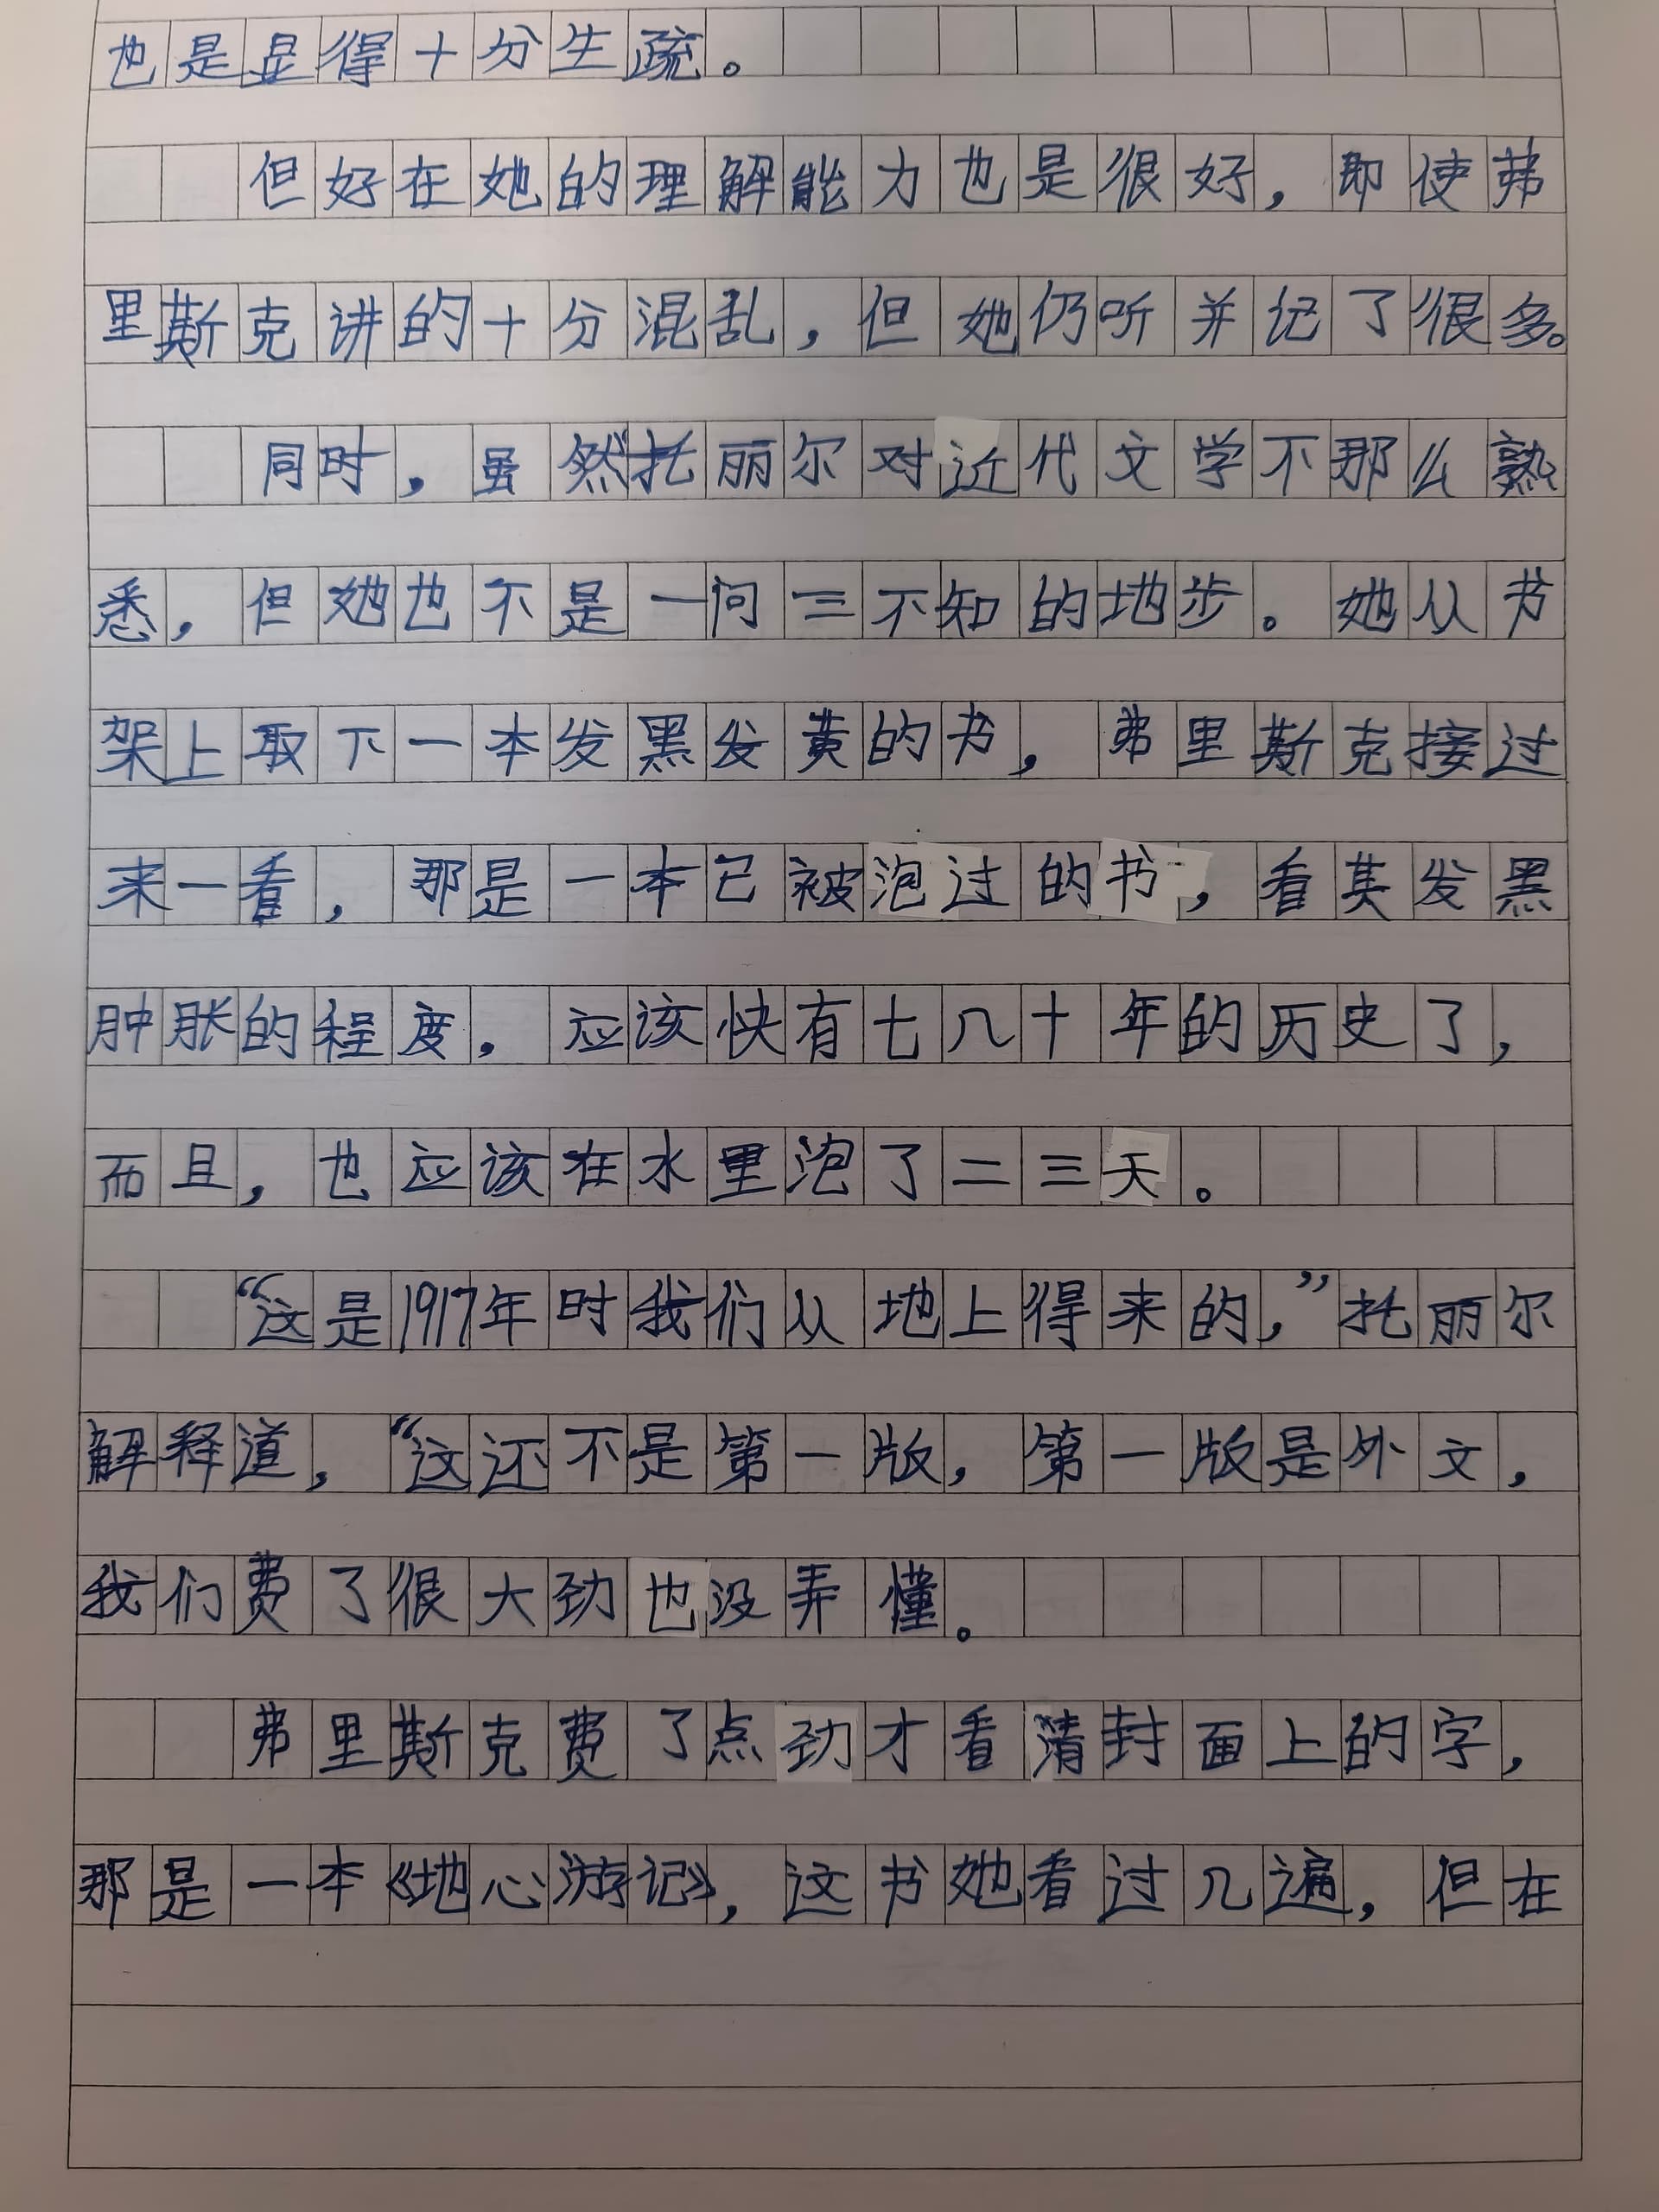 也是显得十分生疏。
但好在她的理解能力也是很好，即使弗
里斯克讲的十分混乱，但她仍听并记了很多。
同时，虽然托丽尔对近代文学不那么熟
悉，但她也不是一问三不知的地步。她从书
架上取下一本发黑发黄的书，弗里斯克接过
来一看，那是一本已被泡过的书，看其发黑
肿胀的程度，应该快有七几十年的历史了，
而且，也应该在水里泡了二三天。
“这是1917年时我们从地上得来的，”托丽尔
解释道，“这还不是第一版，第一版是外文，
我们费了很大劲也没弄懂。
弗里斯克费了点劲才看清封面上的字，
那是一本《地心游记》，这书她看过几遍，但在